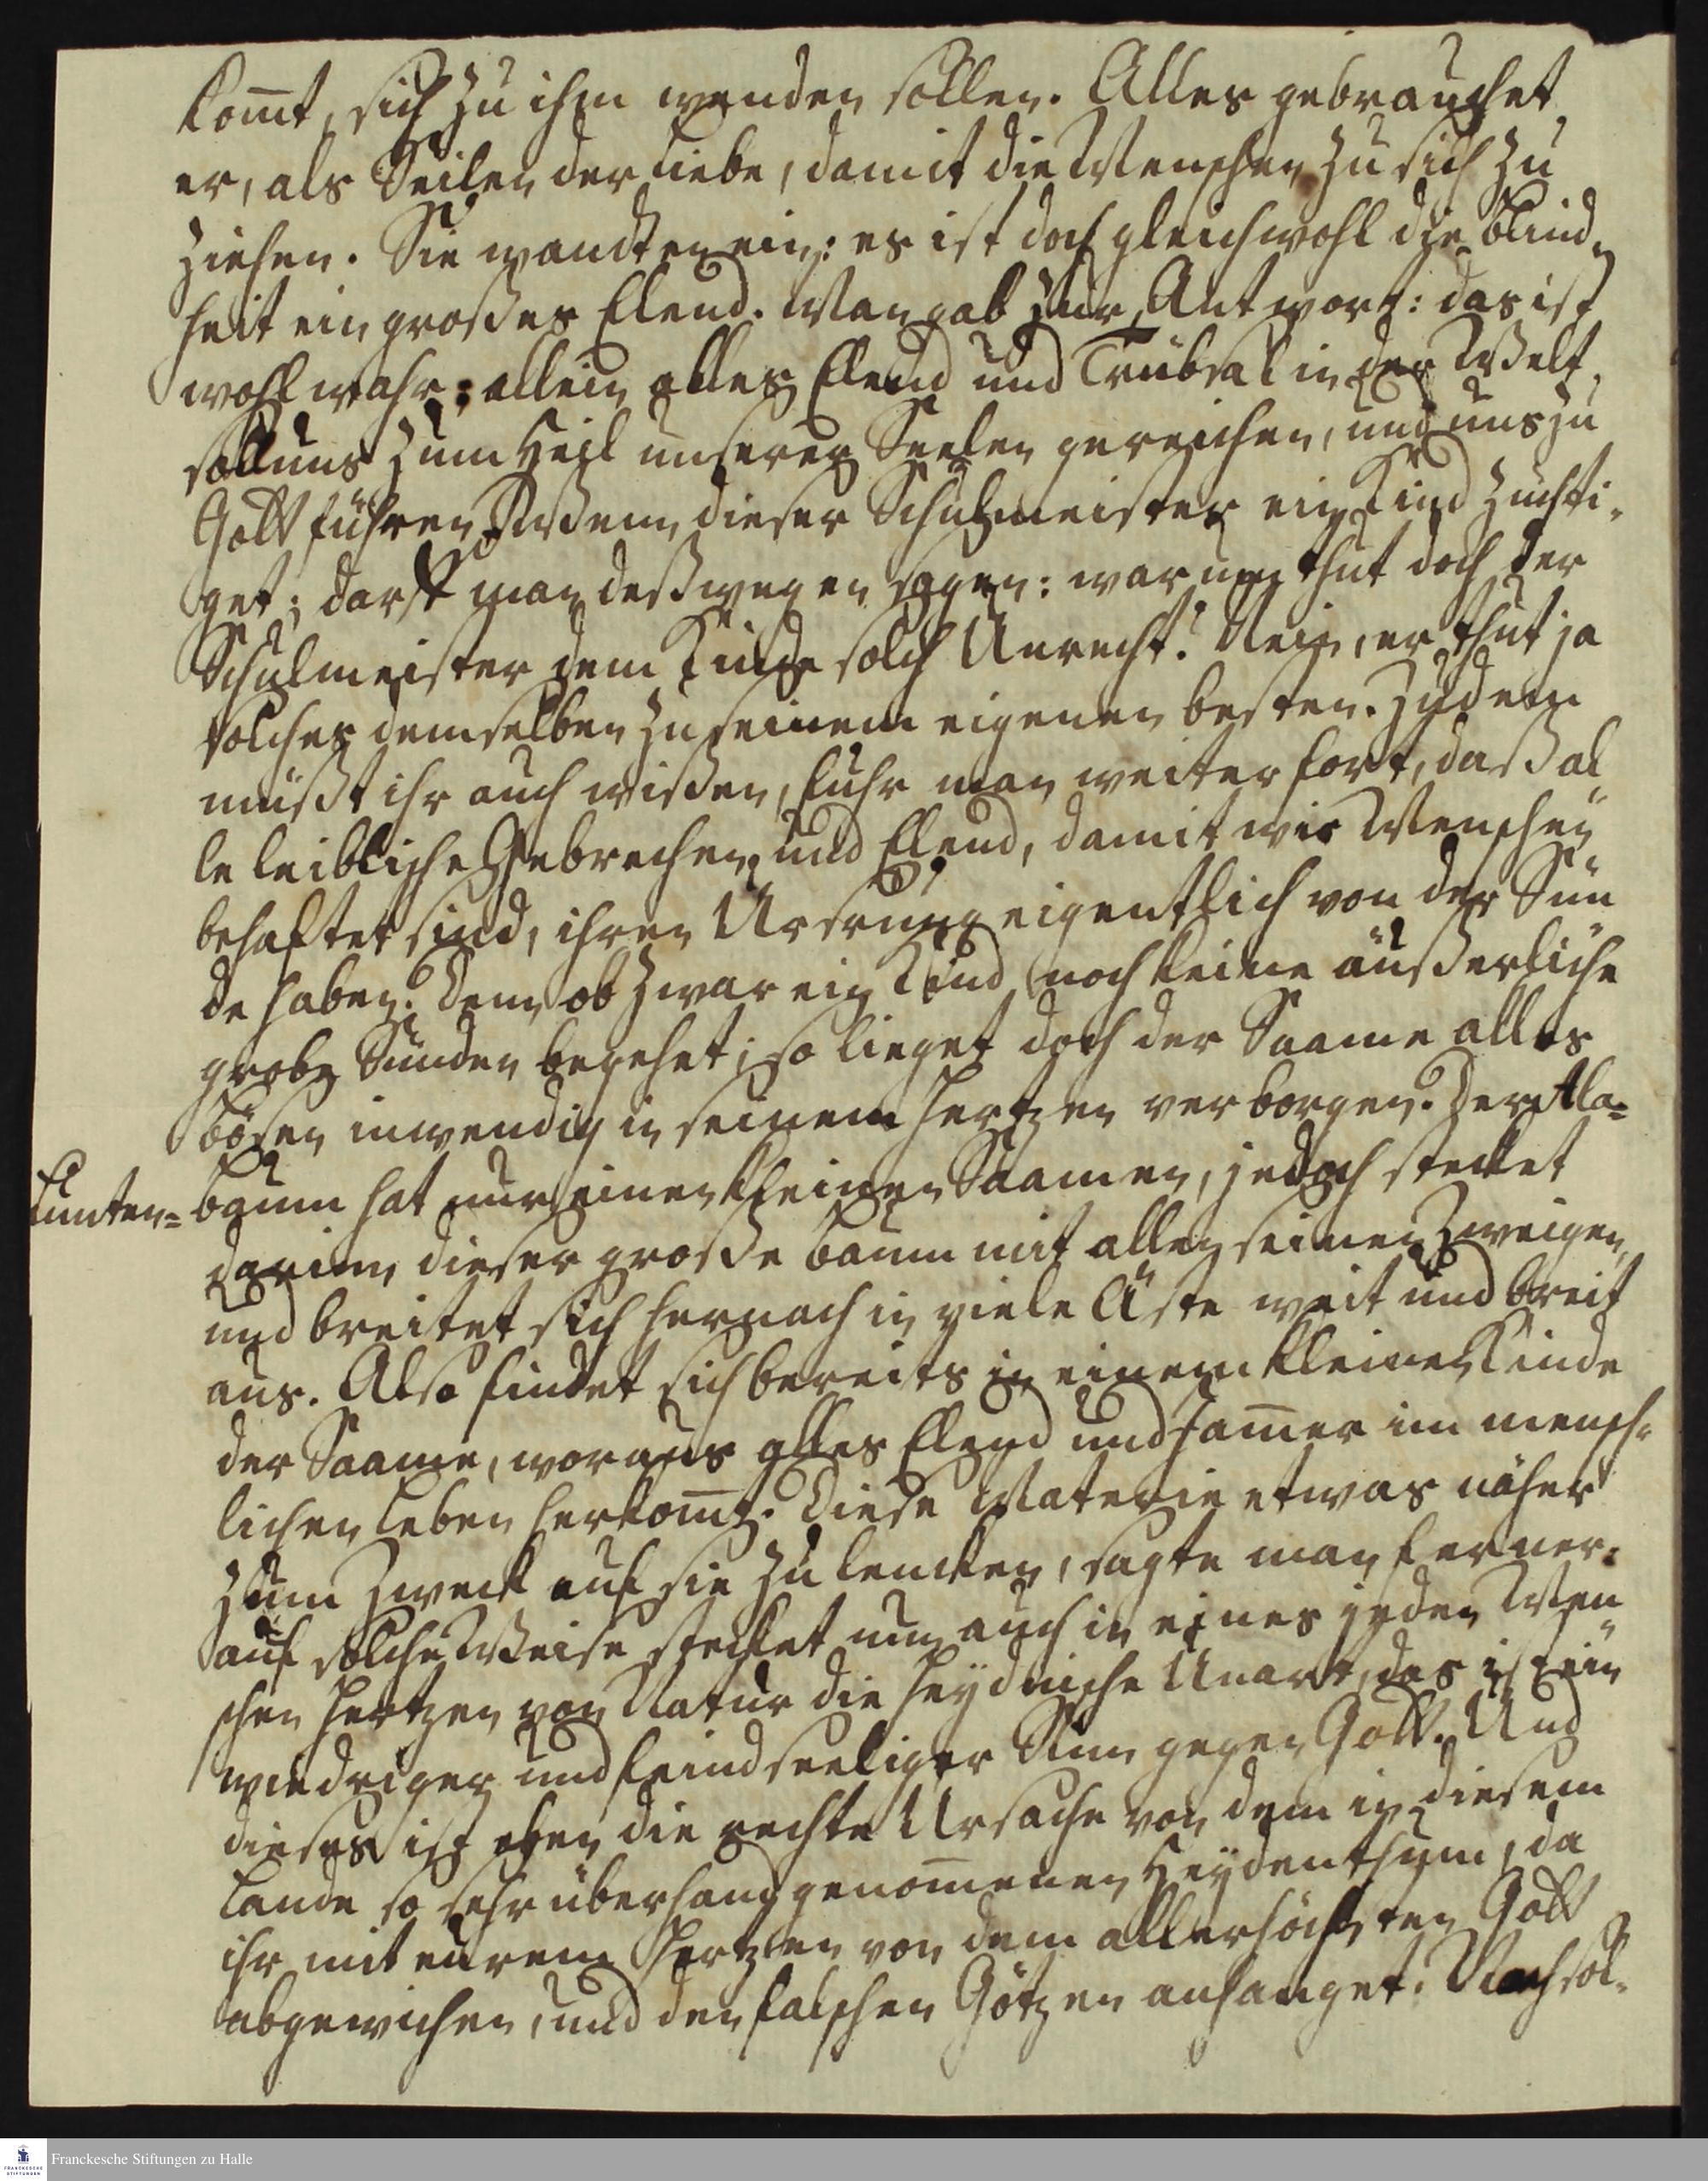 kom̄t, sich zu ihm wenden sollen. Alles gebrauchet
er, als Seilen der Liebe, damit die Menschen zu sich zu
ziehen. Sie wandten ein: es ist doch gleichwohl die Blind„
heit ein großes Elend. Man gab zur Antwort: das ist
wohl wahr; allein alles Elend und Trübsal in der Welt,
soll uns zum Heil unserer Seelen gereichen, und uns zu
Gott führen. Wenn dieser Schulmeister ein Kind züchti„
get; darf man deßwegen sagen: warum thut doch der
Schulmeister dem Kinde solch Unrecht? Nein, er thut ja
solches demselben zu seinem eigenen besten. Zudem
müßt ihr auch wißen, fuhr man weiter fort, daß al„
le leibliche Gebrechen und Elend, damit wir Menschen
behaftet sind, ihren Ursprung eigentlich von der Sün„
de haben. Denn ob zwar ein Kind noch keine äußerliche
grobe Sünden begehet; so lieget doch der Saame alles
bösen inwendig in seinem Hertzen verborgen. Der Ala=
baum hat nur einen kleinen Saamen, jedoch stecket
darinn dieser große Baum mit allen seinen Zweigen,
und breitet sich hernach in viele Äste weit und breit
aus. Also findet sich bereits in einem kleinen Kinde
der Saame, woraus alles Elend und Jam̄er im mensch„
lichen Leben herkom̄t. Diese Materie etwas näher
zum Zweck auf sie zu lencken, sagte man ferner:
auf solche Weise stecket nun auch in eines jeden Men„
schen Hertzen von Natur die heydnische Unart, das ist ein
wiedriger und feindseeliger Sinn gegen Gott. Und
dieses ist eben die rechte Ursache von dem in diesem
Lande so sehr überhand genom̄enen Heydenthum, da
ihr mit eurem Hertzen von dem allerhöchsten Gott
abgewichen, und den falschen Götzen anhanget. Nach sol„
Franckesche Stiftungen zu Halle